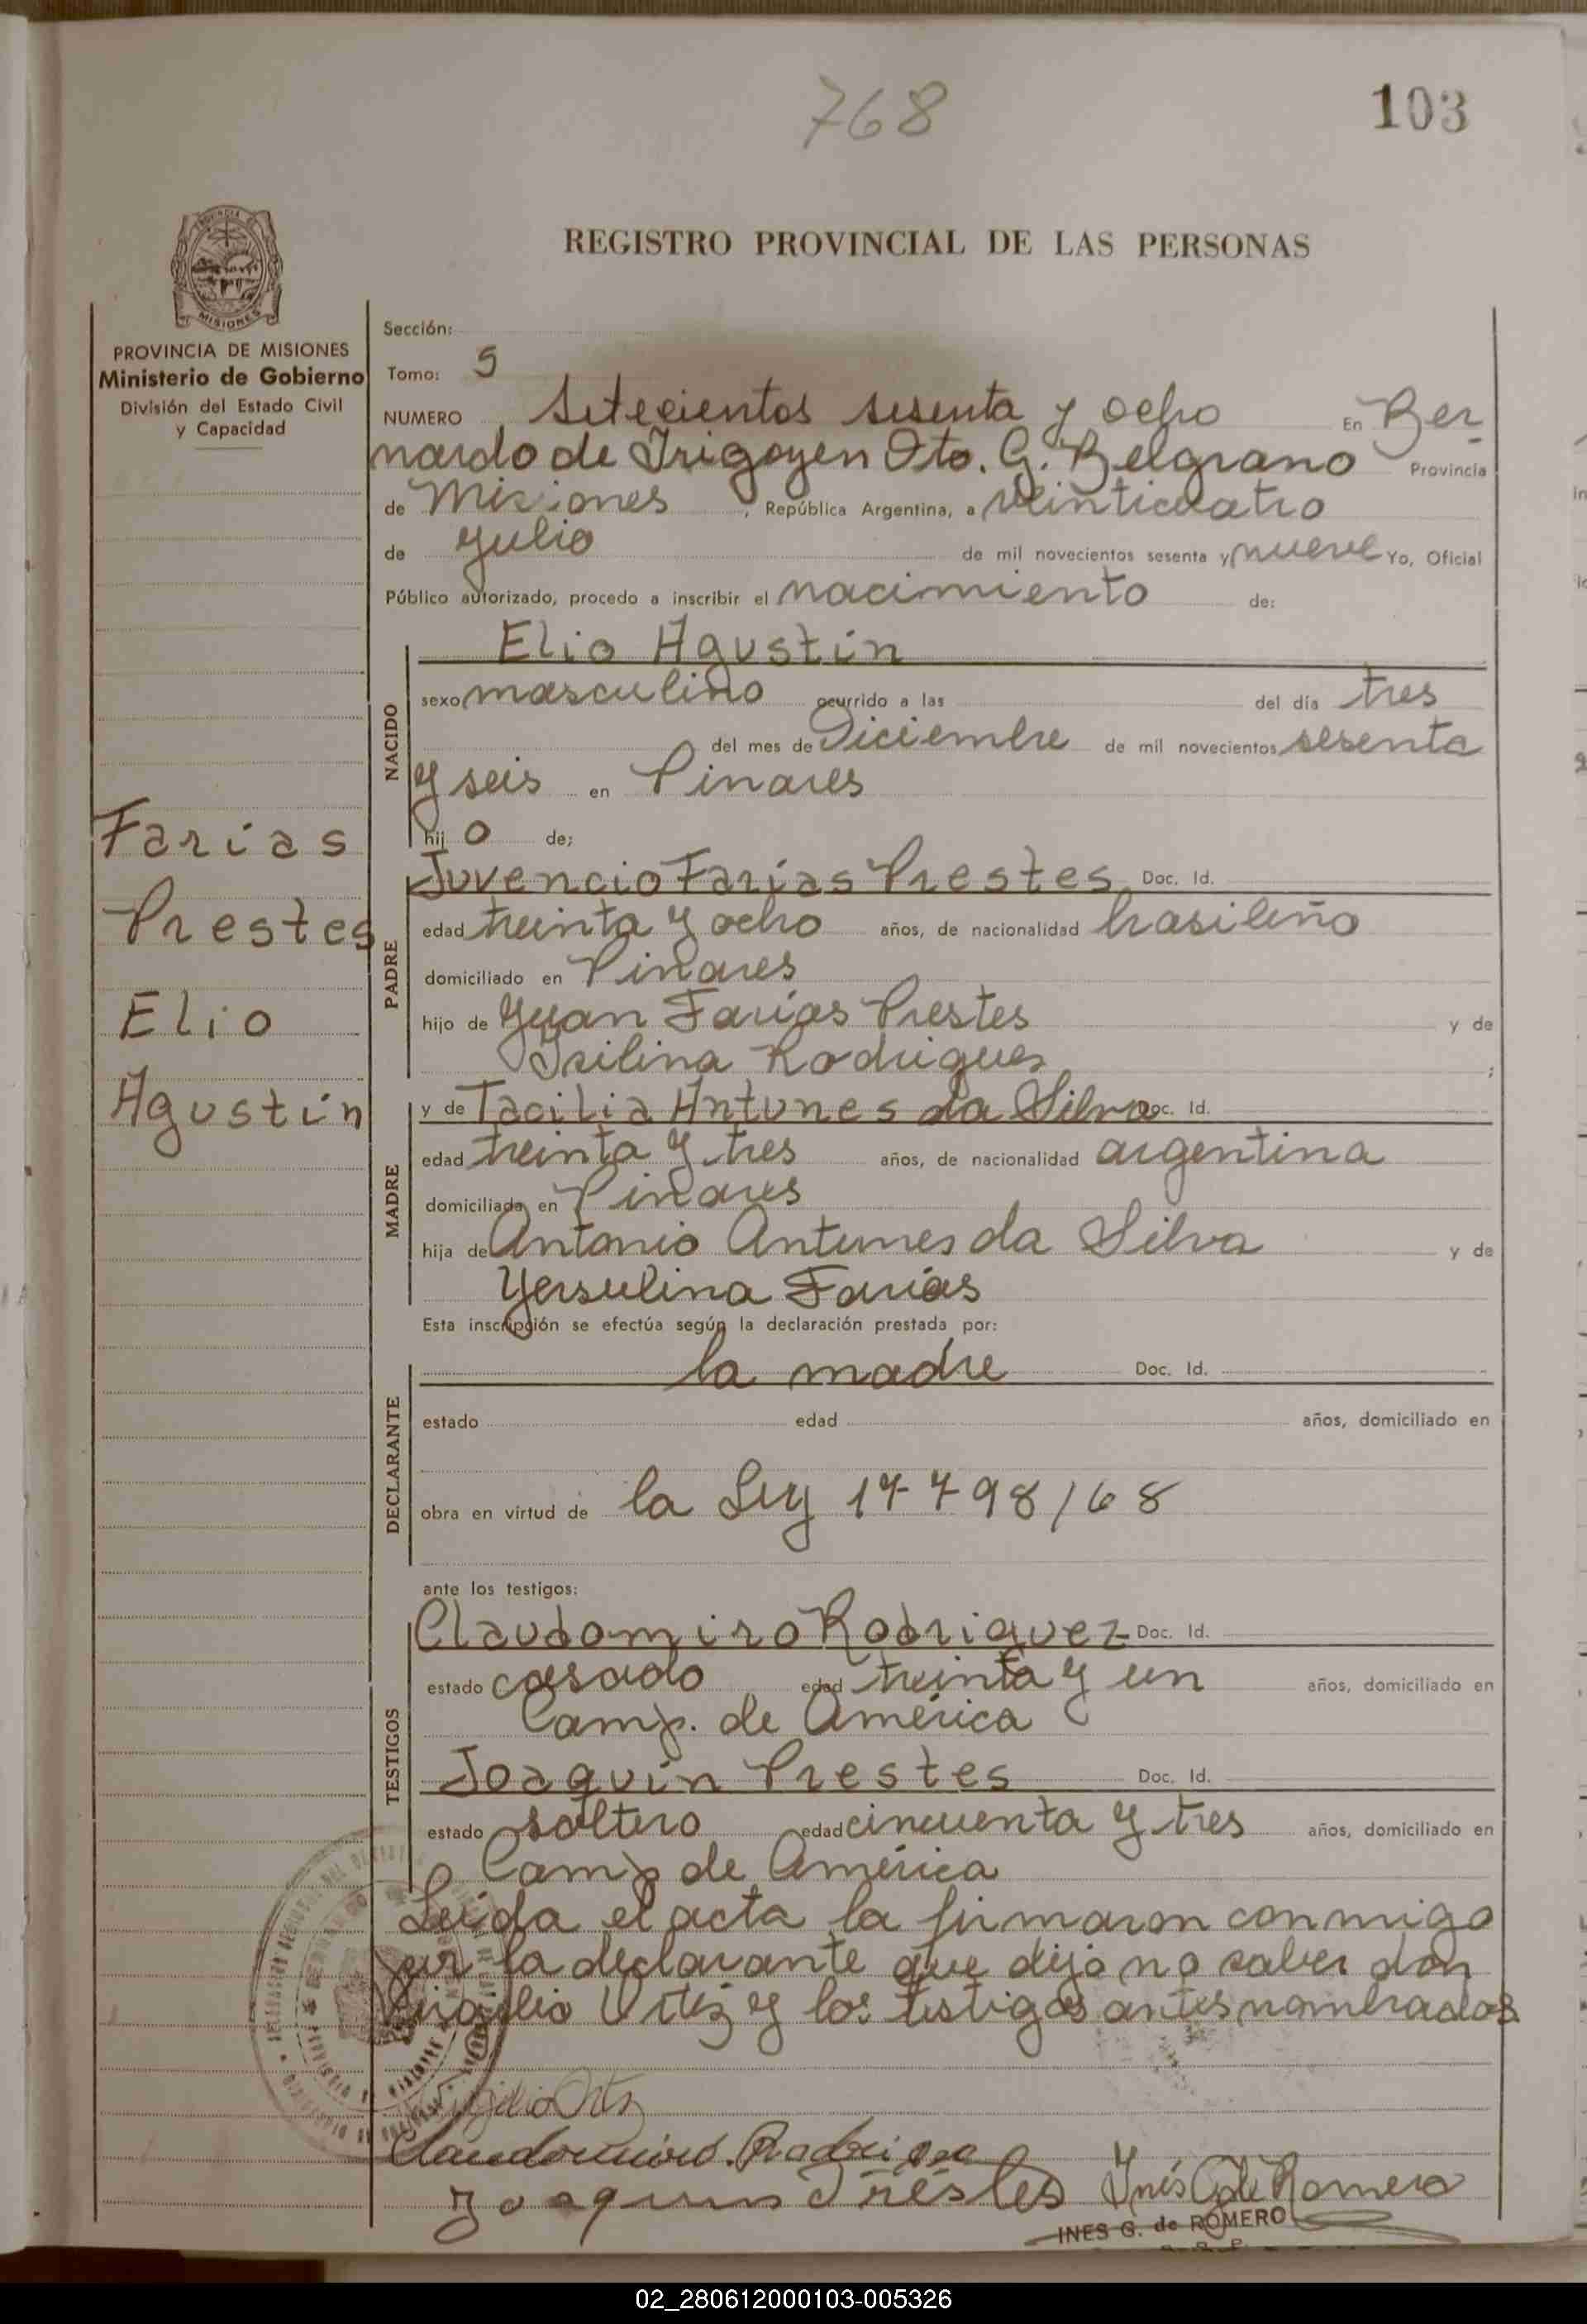 768
103
REGISTRO PROVINCIAL DE LAS PERSONAS
MISIONES
PROVINCIA DE MISIONES
Ministerio de Gobierno
División del Estado Civil
y Capacidad
Sección:
Tomo: 5
NUMERO setecientos sesenta y ocho En Ber-
nardo de Irigoyen Dto. G. Belgrano Provincia
de Misiones, República Argentina, a veinticuatro
de Julio de mil novecientos sesenta y nueve Yo, Oficial
Público autorizado, procedo a inscribir el nacimiento de:
NACIDO
Elio Agustín
sexo masculino ocurrido a las del día tres
del mes de Diciembre de mil novecientos sesenta
y seis en Pinares
hij o de;
Farias
Prestes
Elio
Agustín
PADRE
Juvencio Farías Prestes Doc. Id.
edad treinta y ocho años, de nacionalidad brasileño
domiciliado en Pinares
hijo de Juan Farías Prestes y de
Isilina Rodrigues ;
MADRE
y de Tacilia Antunes da Silva Doc. Id.
edad treinta y tres años, de nacionalidad argentina
domiciliada en Pinares
hija de Antonio Antunes da Silva y de
Yersulina Farías
Esta inscripción se efectúa según la declaración prestada por:
DECLARANTE
la madre Doc. Id.
estado edad años, domiciliado en
obra en virtud de la Ley 17798/68
ante los testigos:
TESTIGOS
Claudomiro Rodriguez Doc. Id.
estado casado edad treinta y un años, domiciliado en
Camp. de América
Joaquín Prestes Doc. Id.
estado soltero edad cincuenta y tres años, domiciliado en
Camp de América
Leida el acta la firmaron conmigo
por la declarante que dijo no saber don
Virgilio Ortiz y los testigos antes nombrados
Joaquin Prestes Inés G de Romero
INES G. de ROMERO
02_280612000103-005326